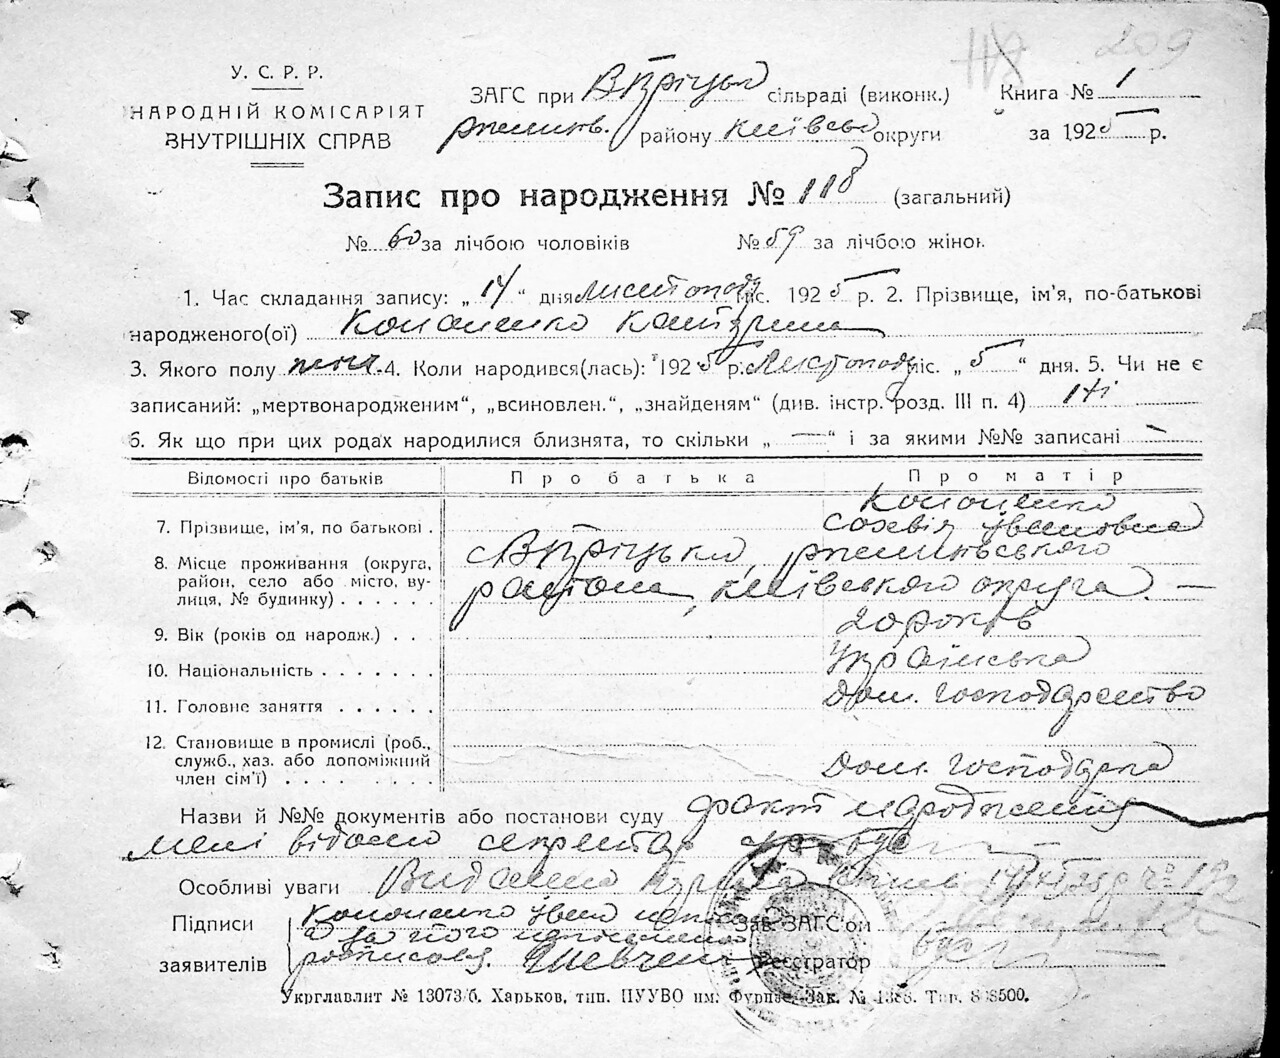 209
У. С. Р. Р.
НАРОДНІЙ КОМІСАРІЯТ
ВНУТРІШНІХ СПРАВ
ЗАГС при сільраді (виконк.) Книга № 1
району Київсько округи за 1925 р.
Запис про народження № 118 (загальний)
№ 60 за лічбою чоловіків № 59 за лічбою жінок
1. Час складання запису: „ 14 “ дня листопад міс. 1925 р. 2. Прізвище, ім'я, по-батькові
народженого(ої) Кононенко Катерина
3. Якого полу жін. 4. Коли народився(лась): 1925 р. Листопад міс. „ 5 “ дня. 5. Чи не є
записаний: „мертвонародженим“, „всиновлен.“, „знайденям“ (див. інстр. розд. III п. 4) ні
6. Як що при цих родах народилися близнята, то скільки „ — “ і за якими №№ записані —
Відомості про батьків Про батька Про матір
7. Прізвище, ім'я, по батькові . Кононенко
Іванівна
8. Місце проживання (округа,
район, село або місто, ву-
лиця, № будинку) . . . . . . района, Київського округа. —
9. Вік (років од народж.) . . 20 років
10. Національність . . . . . . . Українська
11. Головне заняття . . . . . . Дом. господарство
12. Становище в промислі (роб.,
служб., хаз. або допоміжний
член сім'ї) . . . . . . . . Дом. господарка
Назви й №№ документів або постанови суду факт народження
мені відомо секретар
Особливі уваги Видано
Підписи Кононенко Зав. ЗАГС'ом
а за його
заявителів росписовся Шевченко Реєстратор
Укрглавліт № 13073/б. Харьков, тип. ПУУВО им. Фрунзе. Зак. № 1388. Тир. 808500.